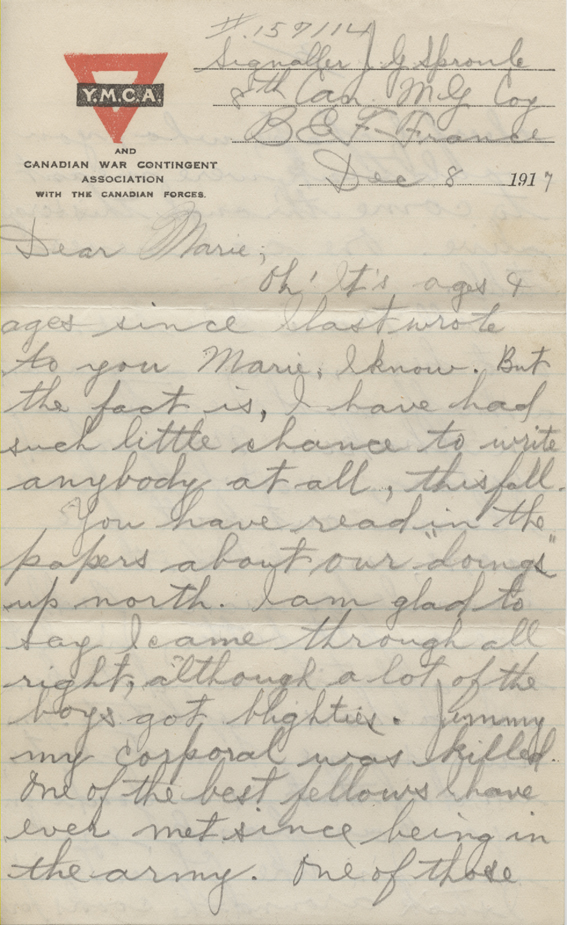 #.157114
Signaller J G Sproule
8th Can M G Coy
B E F France
Dec 8 1917
Y.M.C.A.
AND
CANADIAN WAR CONTINGENT
ASSOCIATION
WITH THE CANADIAN FORCES.
Dear Marie;
Oh! It's ages &
ages since I last wrote
to you Marie, I know. But
the fact is, I have had
such little chance to write
anybody at all, this fall.
You have read in the
papers about our "doings"
up north. I am glad to
say I came through all
right, although a lot of the
boys got blighties. Jimmy
my corporal was killed.
One of the best fellows I have
ever met since being in
the army. One of those